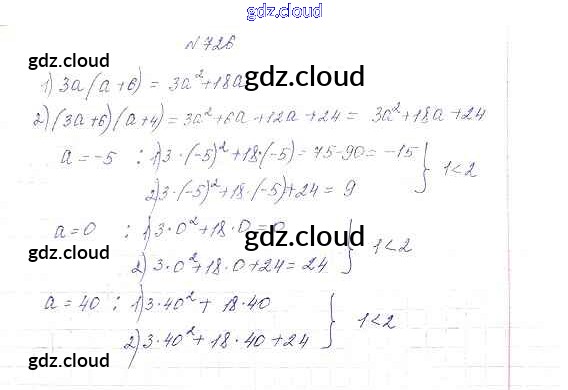 gdz.cloud
N 726
gdz.cloud
1) 3a(a+6) = 3a²+18a
gdz.cloud
2) (3a+6)(a+4) = 3a²+6a+12a+24 = 3a²+18a+24
a = -5 : 1) 3·(-5)²+18·(-5) = 75-90 = -15
2) 3·(-5)²+18·(-5)+24 = 9 } 1<2
a = 0 : 1) 3·0²+18·0 = 0
gdz.cloud
gdz.cloud
2) 3·0²+18·0+24 = 24 } 1<2
a = 40 : 1) 3·40²+18·40
2) 3·40²+18·40+24 } 1<2
gdz.cloud
gdz.cloud